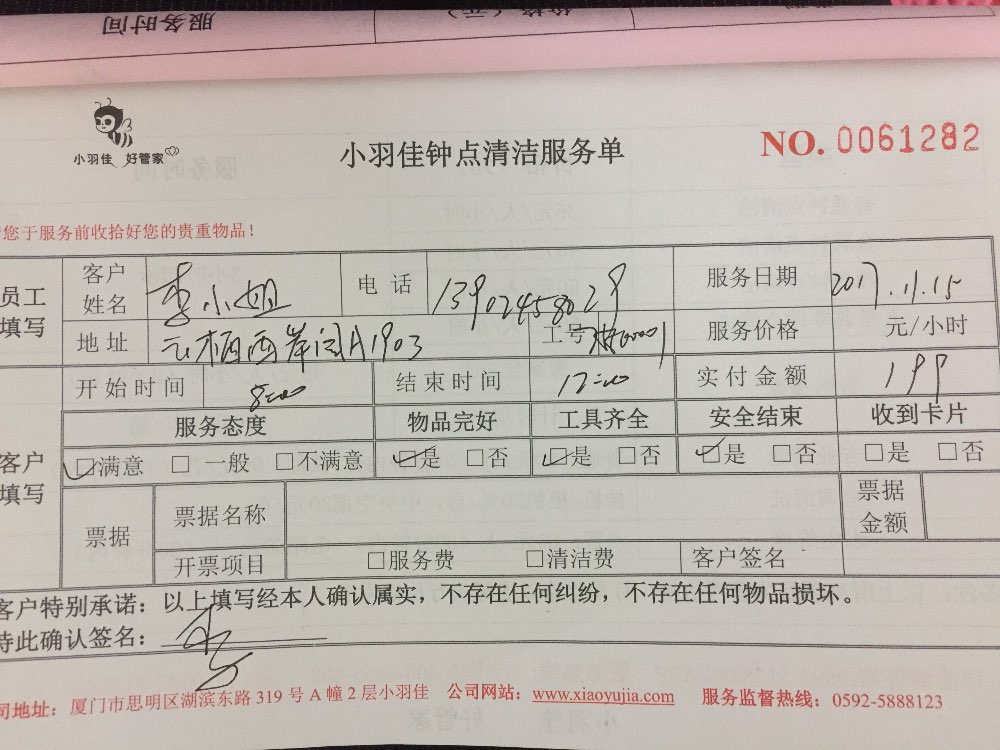 服务时间
小羽佳 好管家
小羽佳钟点清洁服务单
NO. 0061282
您于服务前收拾好您的贵重物品！
员工填写
客户姓名 李小姐 电话 13902458029 服务日期 2017.11.15
地址 两岸 A1903 工号 服务价格 元/小时
开始时间 8:00 结束时间 12:00 实付金额 199
客户填写
服务态度 物品完好 工具齐全 安全结束 收到卡片
☑满意 □一般 □不满意 ☑是 □否 ☑是 □否 ☑是 □否 □是 □否
票据 票据名称 票据金额
开票项目 □服务费 □清洁费 客户签名
客户特别承诺：以上填写经本人确认属实，不存在任何纠纷，不存在任何物品损坏。
特此确认签名：李
司地址：厦门市思明区湖滨东路 319 号 A 幢 2 层小羽佳 公司网站：www.xiaoyujia.com 服务监督热线：0592-5888123